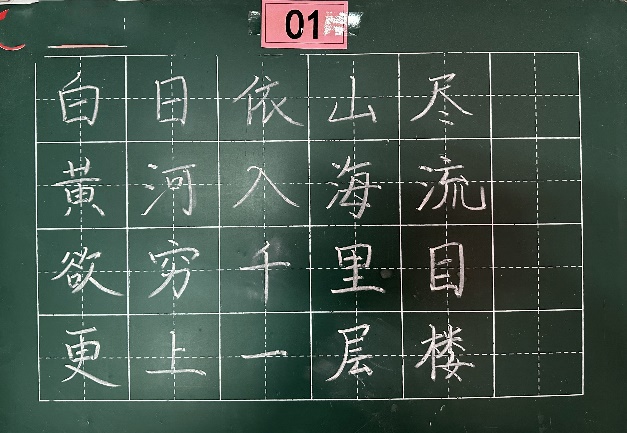 01
白日依山尽
黄河入海流
欲穷千里目
更上一层楼